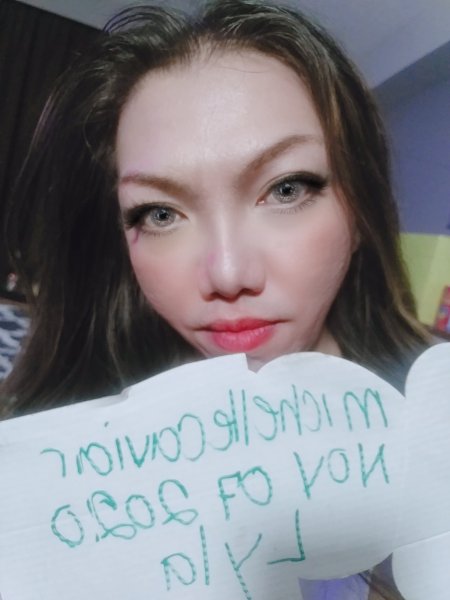 michellecaviar
NOV 07 2020
Lyla